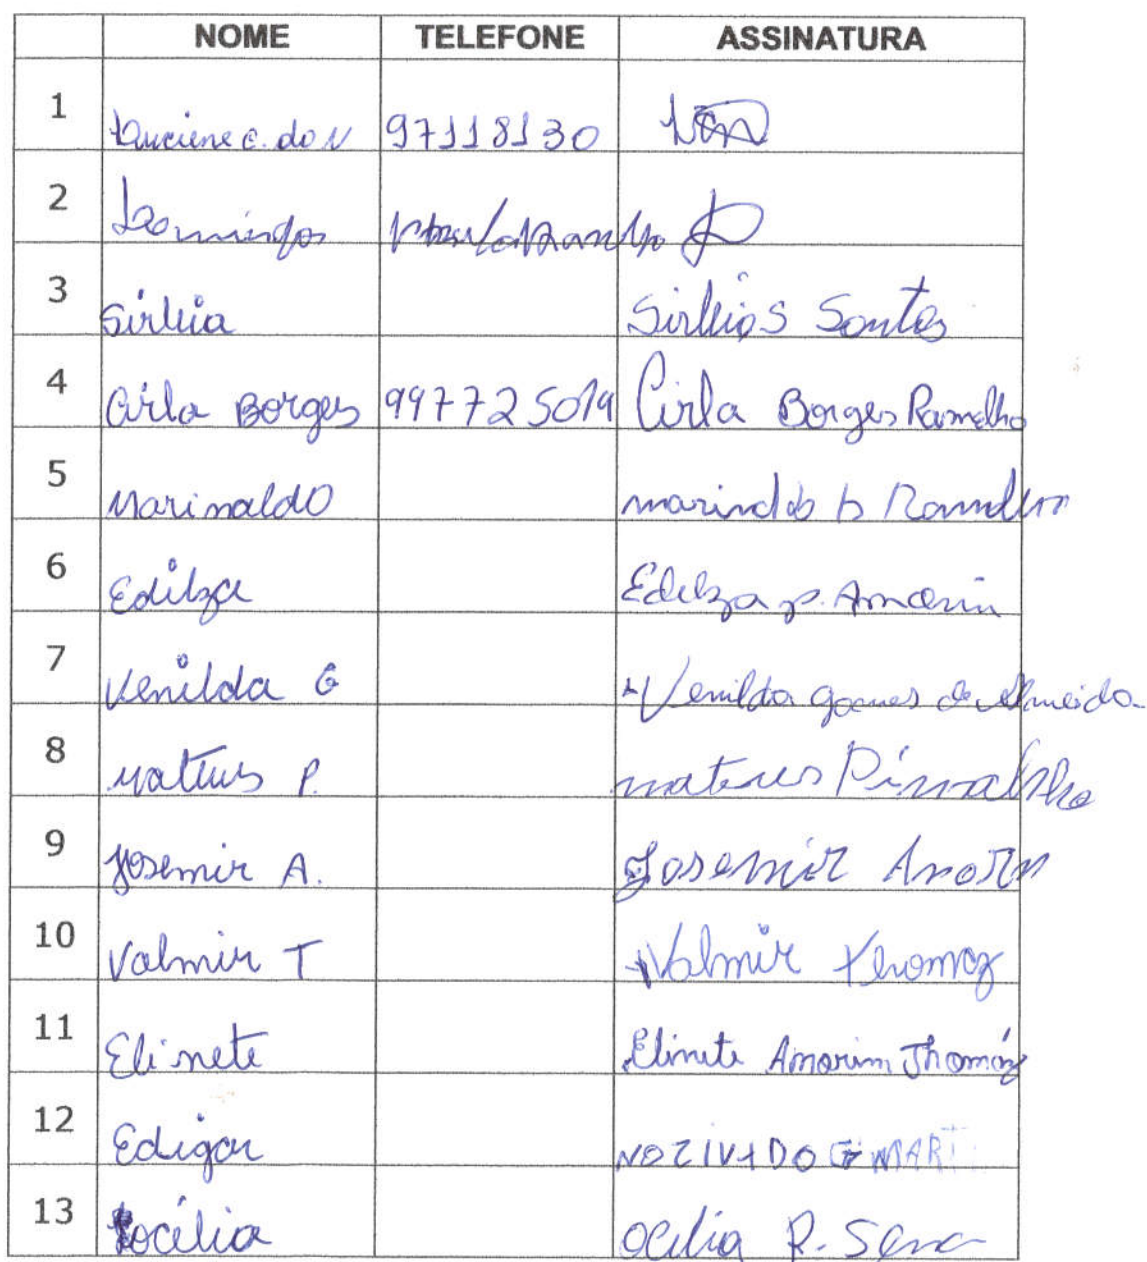 NOME TELEFONE ASSINATURA
1 Luciene C. do N 97118130
2 Domingos
3 Sirleia Sirleia S Santos
4 Cirla Borges 997725019 Cirla Borges Ramalho
5 Marinaldo marinaldo b Ramalho
6 Edilza Edilza p. Amorin
7 Venilda G Venilda gomes de Almeida
8 Mateus P. mateus
9 Josemir A. Josemir Amorin
10 Valmir T Valmir Thomaz
11 Elinete Elinete Amorim Thomáz
12 Edigar
13 ocília ocilia R. Sena